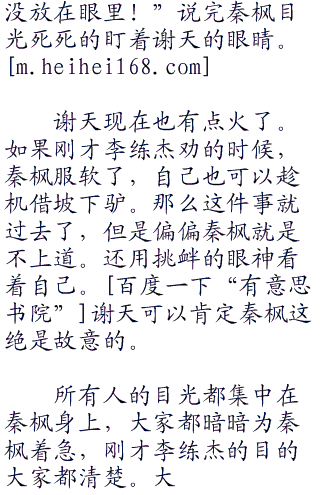 没放在眼里！”说完秦枫目
光死死的盯着谢天的眼睛。
[m.heihei168.com]
谢天现在也有点火了。
如果刚才李练杰劝的时候，
秦枫服软了，自己也可以趁
机借坡下驴。那么这件事就
过去了，但是偏偏秦枫就是
不上道。还用挑衅的眼神看
着自己。[百度一下“有意思
书院”]谢天可以肯定秦枫这
绝是故意的。
所有人的目光都集中在
秦枫身上，大家都暗暗为秦
枫着急，刚才李练杰的目的
大家都清楚。大